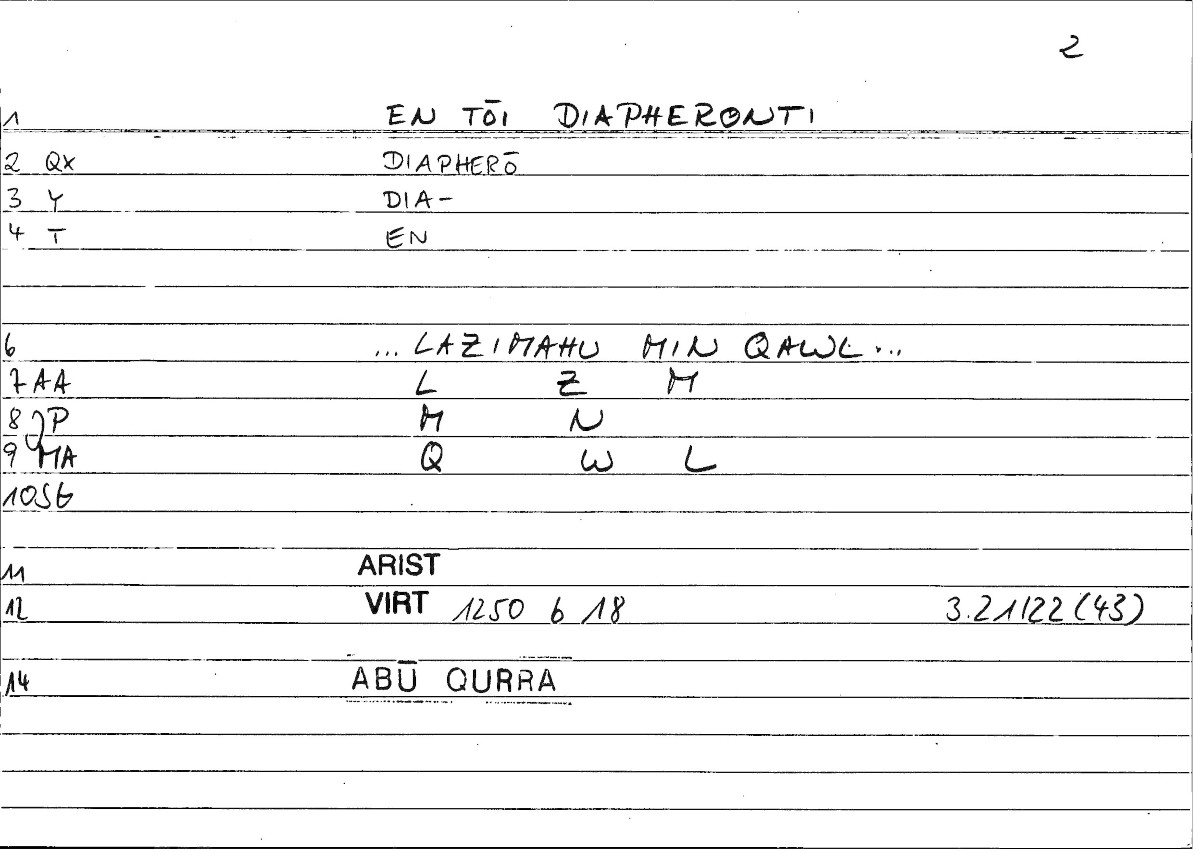 2
1 EN TŌI DIAPHERONTI
2 QX DIAPHERŌ
3 Y DIA-
4 T EN
6 ... LAZIMAHU MIN QAWL ...
7 AA L Z M
8 JP M N
9 MA Q W L
10 SG
11 ARIST
12 VIRT 1250 b 18 3.21/22 (43)
14 ABŪ QURRA